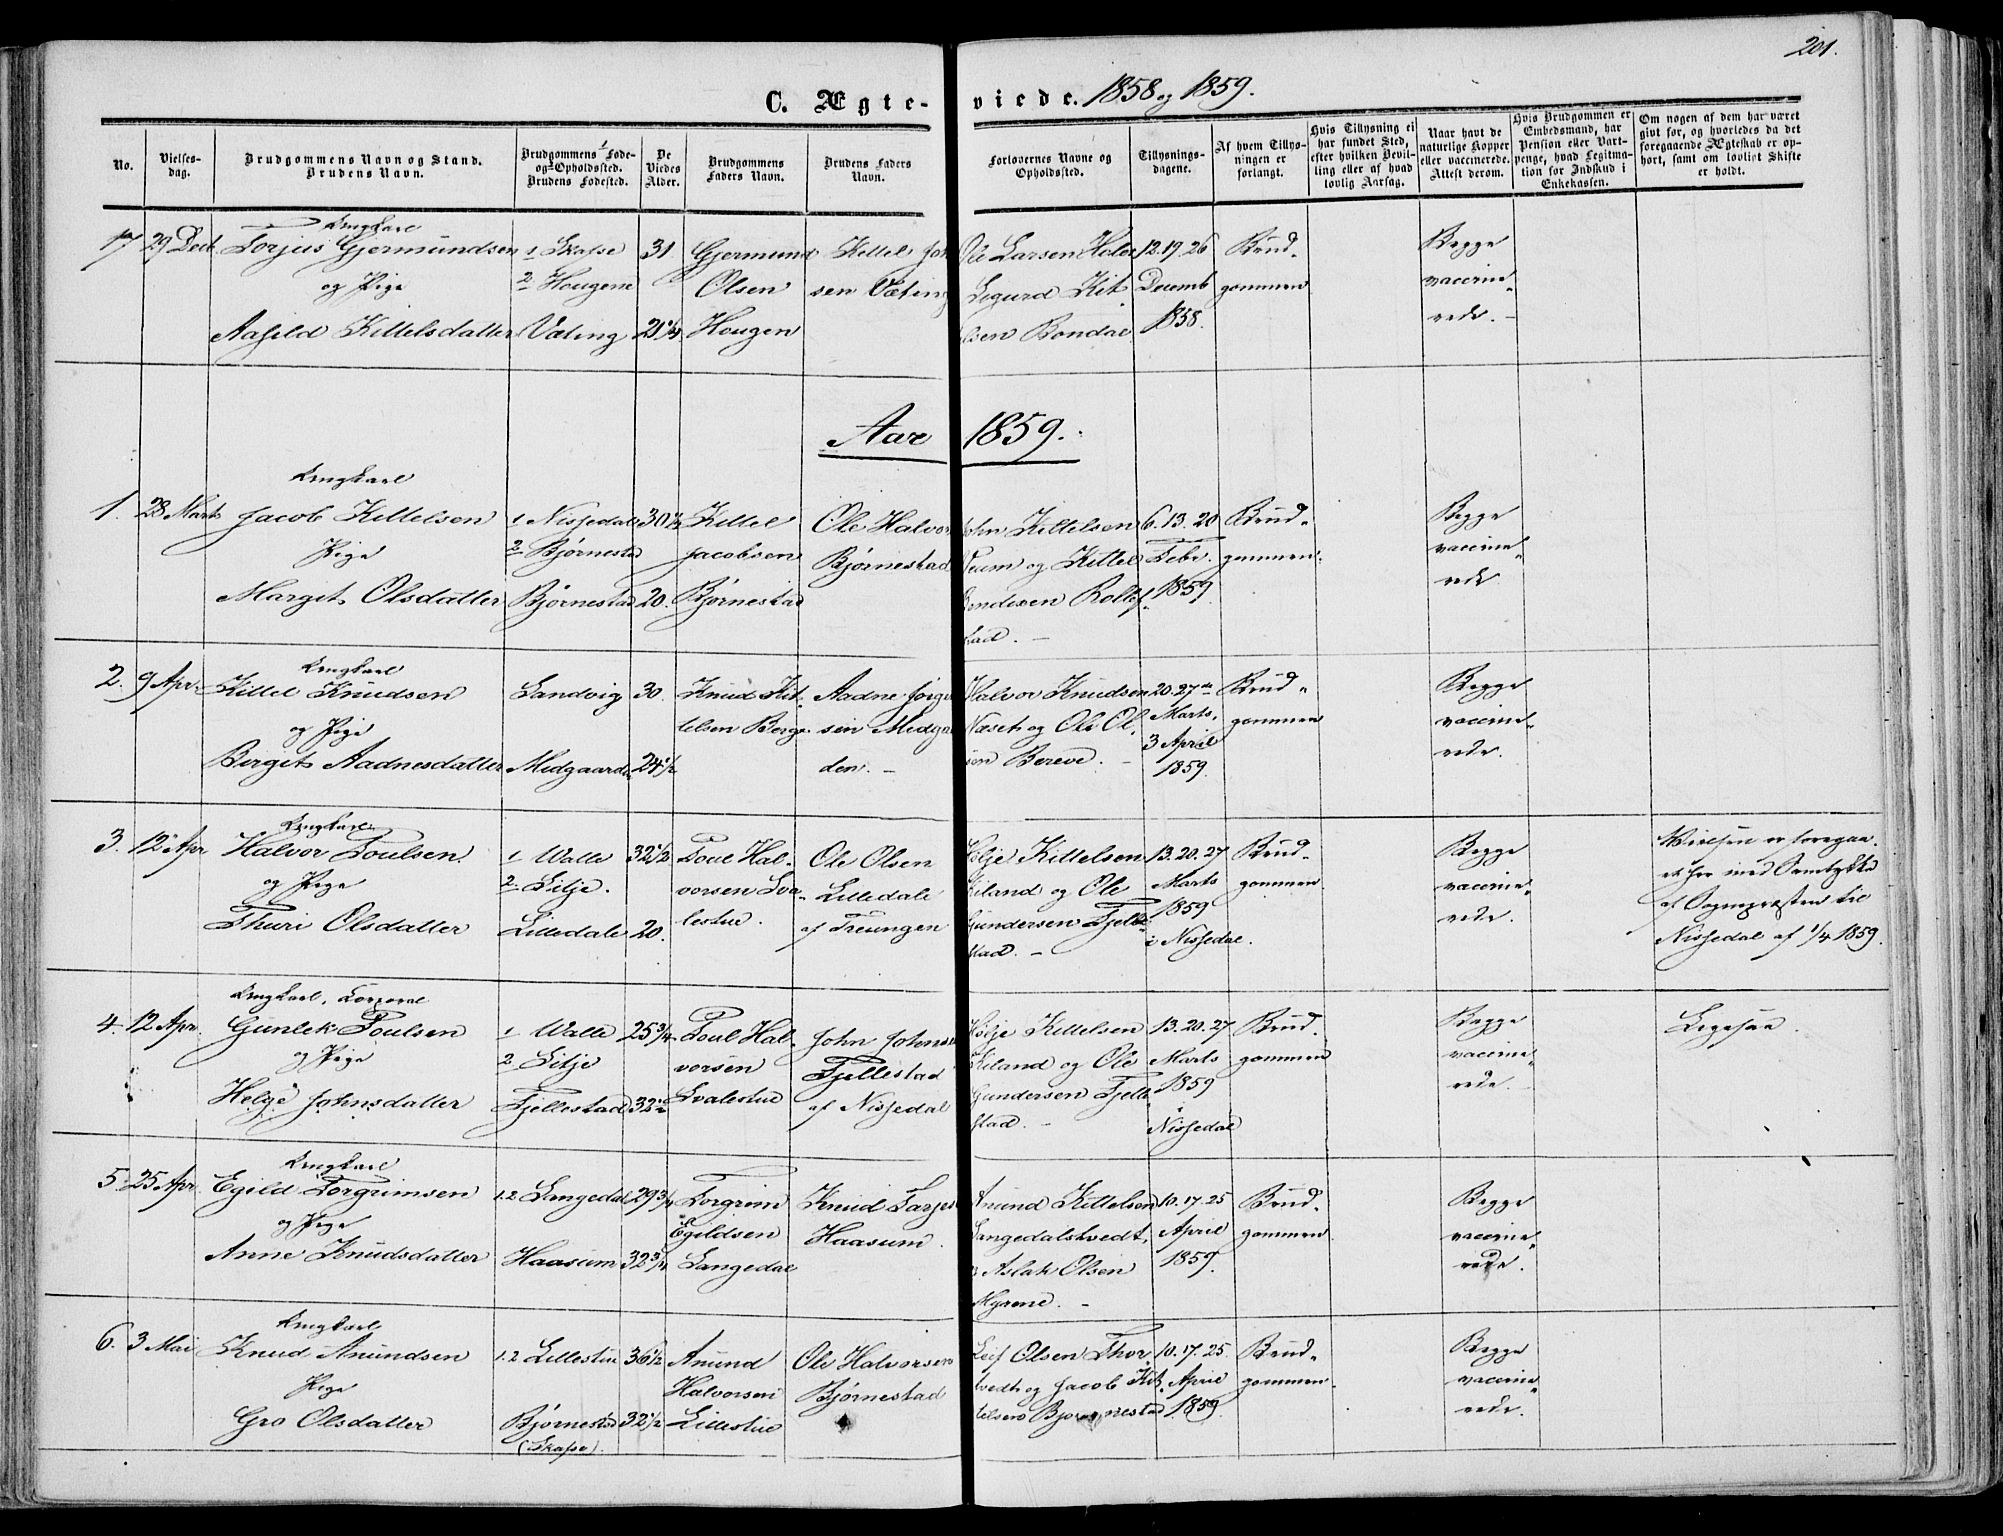 201.
C. Ægte- viede. 1858 og 1859.
No.
Vielses-
dag.
Brudgommens Navn og Stand.
Brudens Navn.
Brudgommens Føde-
og Opholdssted.
Brudens Fødested.
De
Viedes
Alder.
Brudgommens
Faders Navn.
Brudens Faders
Navn.
Forlovernes Navne og
Opholdssted.
Tillysnings-
dagene.
Af hvem Tillys-
ningen er
forlangt.
Hvis Tillysning ei
har fundet Sted,
efter hvilken Bevil-
ling eller af hvad
lovlig Aarsag.
Naar havt de
naturlige Kopper
eller vaccinerede.
Attest derom.
Hvis Brudgommen er
Embedsmand, har
Pension eller Vart-
penge, hvad Legitma-
tion for Indskud i
Enkekassen.
Om nogen af dem har været
gift før, og hvorledes da det
foregaaende Ægteskab er op-
hørt, samt om lovligt Skifte
er holdt.
17 29 Decb.
Ungkarl
Torjus Gjermundsen
og Pige
Aasild Kittelsdatter
1 Skafse
2 Hougene
Væting
31
21 1/4
Gjermund
Olsen
Hougen
Kittel Joh
sen Væting
Ole Larsen
Sigurd Kit
elsen Bondal
12. 19. 26
Decemb
1858.
Brud-
gommen
Begge
vaccine-
rede.
Aar 1859.
1. 28 Marts
Ungkarl
Jacob Kittelsen
Pige
Margit Olsdatter
1 Nissedal
2 Bjørnestad
Bjørnestad
30 1/2
20.
Kittel
Jacobsen
Bjørnestad
Ole Halvor
Bjørnestad
John Kittelsen
Veum og Kittel
Bendixen Rollef
stad.
6. 13. 20
Febr.
1859
Brud-
gommen.
Begge
vaccine-
rede
2. 9 Apr.
Ungkarl
Kittel Knudsen
og Pige
Birgit Aadnesdatter
Sandvig
Midgaarden
30.
24 1/2
Knud Kit-
telsen Berge
Aadne Jørgen
sen Midgaar
den.
Halvor Knudsen
Næset og Ole Ol-
sen Bereve.
20. 27de
Marts.
3 April
1859.
Brud-
gommen
Begge
vaccine-
rede.
3. 12 Apr
Ungkarl
Halvor Poulsen.
og Pige
Thuri Olsdatter
1 Walle
2 Lilje.
Lilledale
32 1/2
20.
Poul Hal-
vorsen Sva-
lestue.
Ole Olsen
Lilledale
af Treungen
Hølje Kittelsen
Kiland og Ole
Gundersen Fjelle-
stad.
13. 20. 27
Marts
1859
i Nissedal.
Brud-
gommen.
Begge
vaccine-
rede.
Vielsen er foregaa-
et her med Samtykke
af Sognepræsten til
Nissedal af 1/4 1859.
4. 12 Apr.
Ungkarl, Korporal
Gunlek Poulsen
og Pige
Helge Johnsdatter
1 Walle
2 Lilje
Fjellestad
25 3/4
32 1/2
Poul Hal-
vorsen
Svalestue
John Johnsen
Fjellestad
af Nissedal
Hølje Kittelsen
Kiland og Ole
Gundersen Fjelle-
stad.
13. 20. 27
Marts
1859
i
Nissedal
Brud-
gommen
Begge
vaccine-
rede.
Ligesaa.
5. 25 Apr.
Ungkarl
Egild Torgrimsen
og Pige
Anne Knudsdatter
1.2 Langedal
Haasum
29 3/4
32 3/4
Torgrim
Egildsen
Langedal
Knud Tarjes
Haasum.
Anund Kittelsen
Langedalstvedt,
Aslak Olsen
Myrene.
10. 17. 25
April
1859.
Brud-
gommen
Begge
vaccine-
rede.
6. 3 Mai
Ungkarl
Knud Anundsen
Pige
Gro Olsdatter
1.2 Lillestue
Bjørnestad
(Skafse).
36 1/2
32 1/2
Anund
Halvorsen
Lillestue
Ole Halvorsen
Bjørnestad
Leif Olsen Thor-
tvedt og Jacob Kit-
telsen Bjørnestad
10. 17. 25.
April
1859.
Brud-
gommen.
Begge
vaccine-
rede.